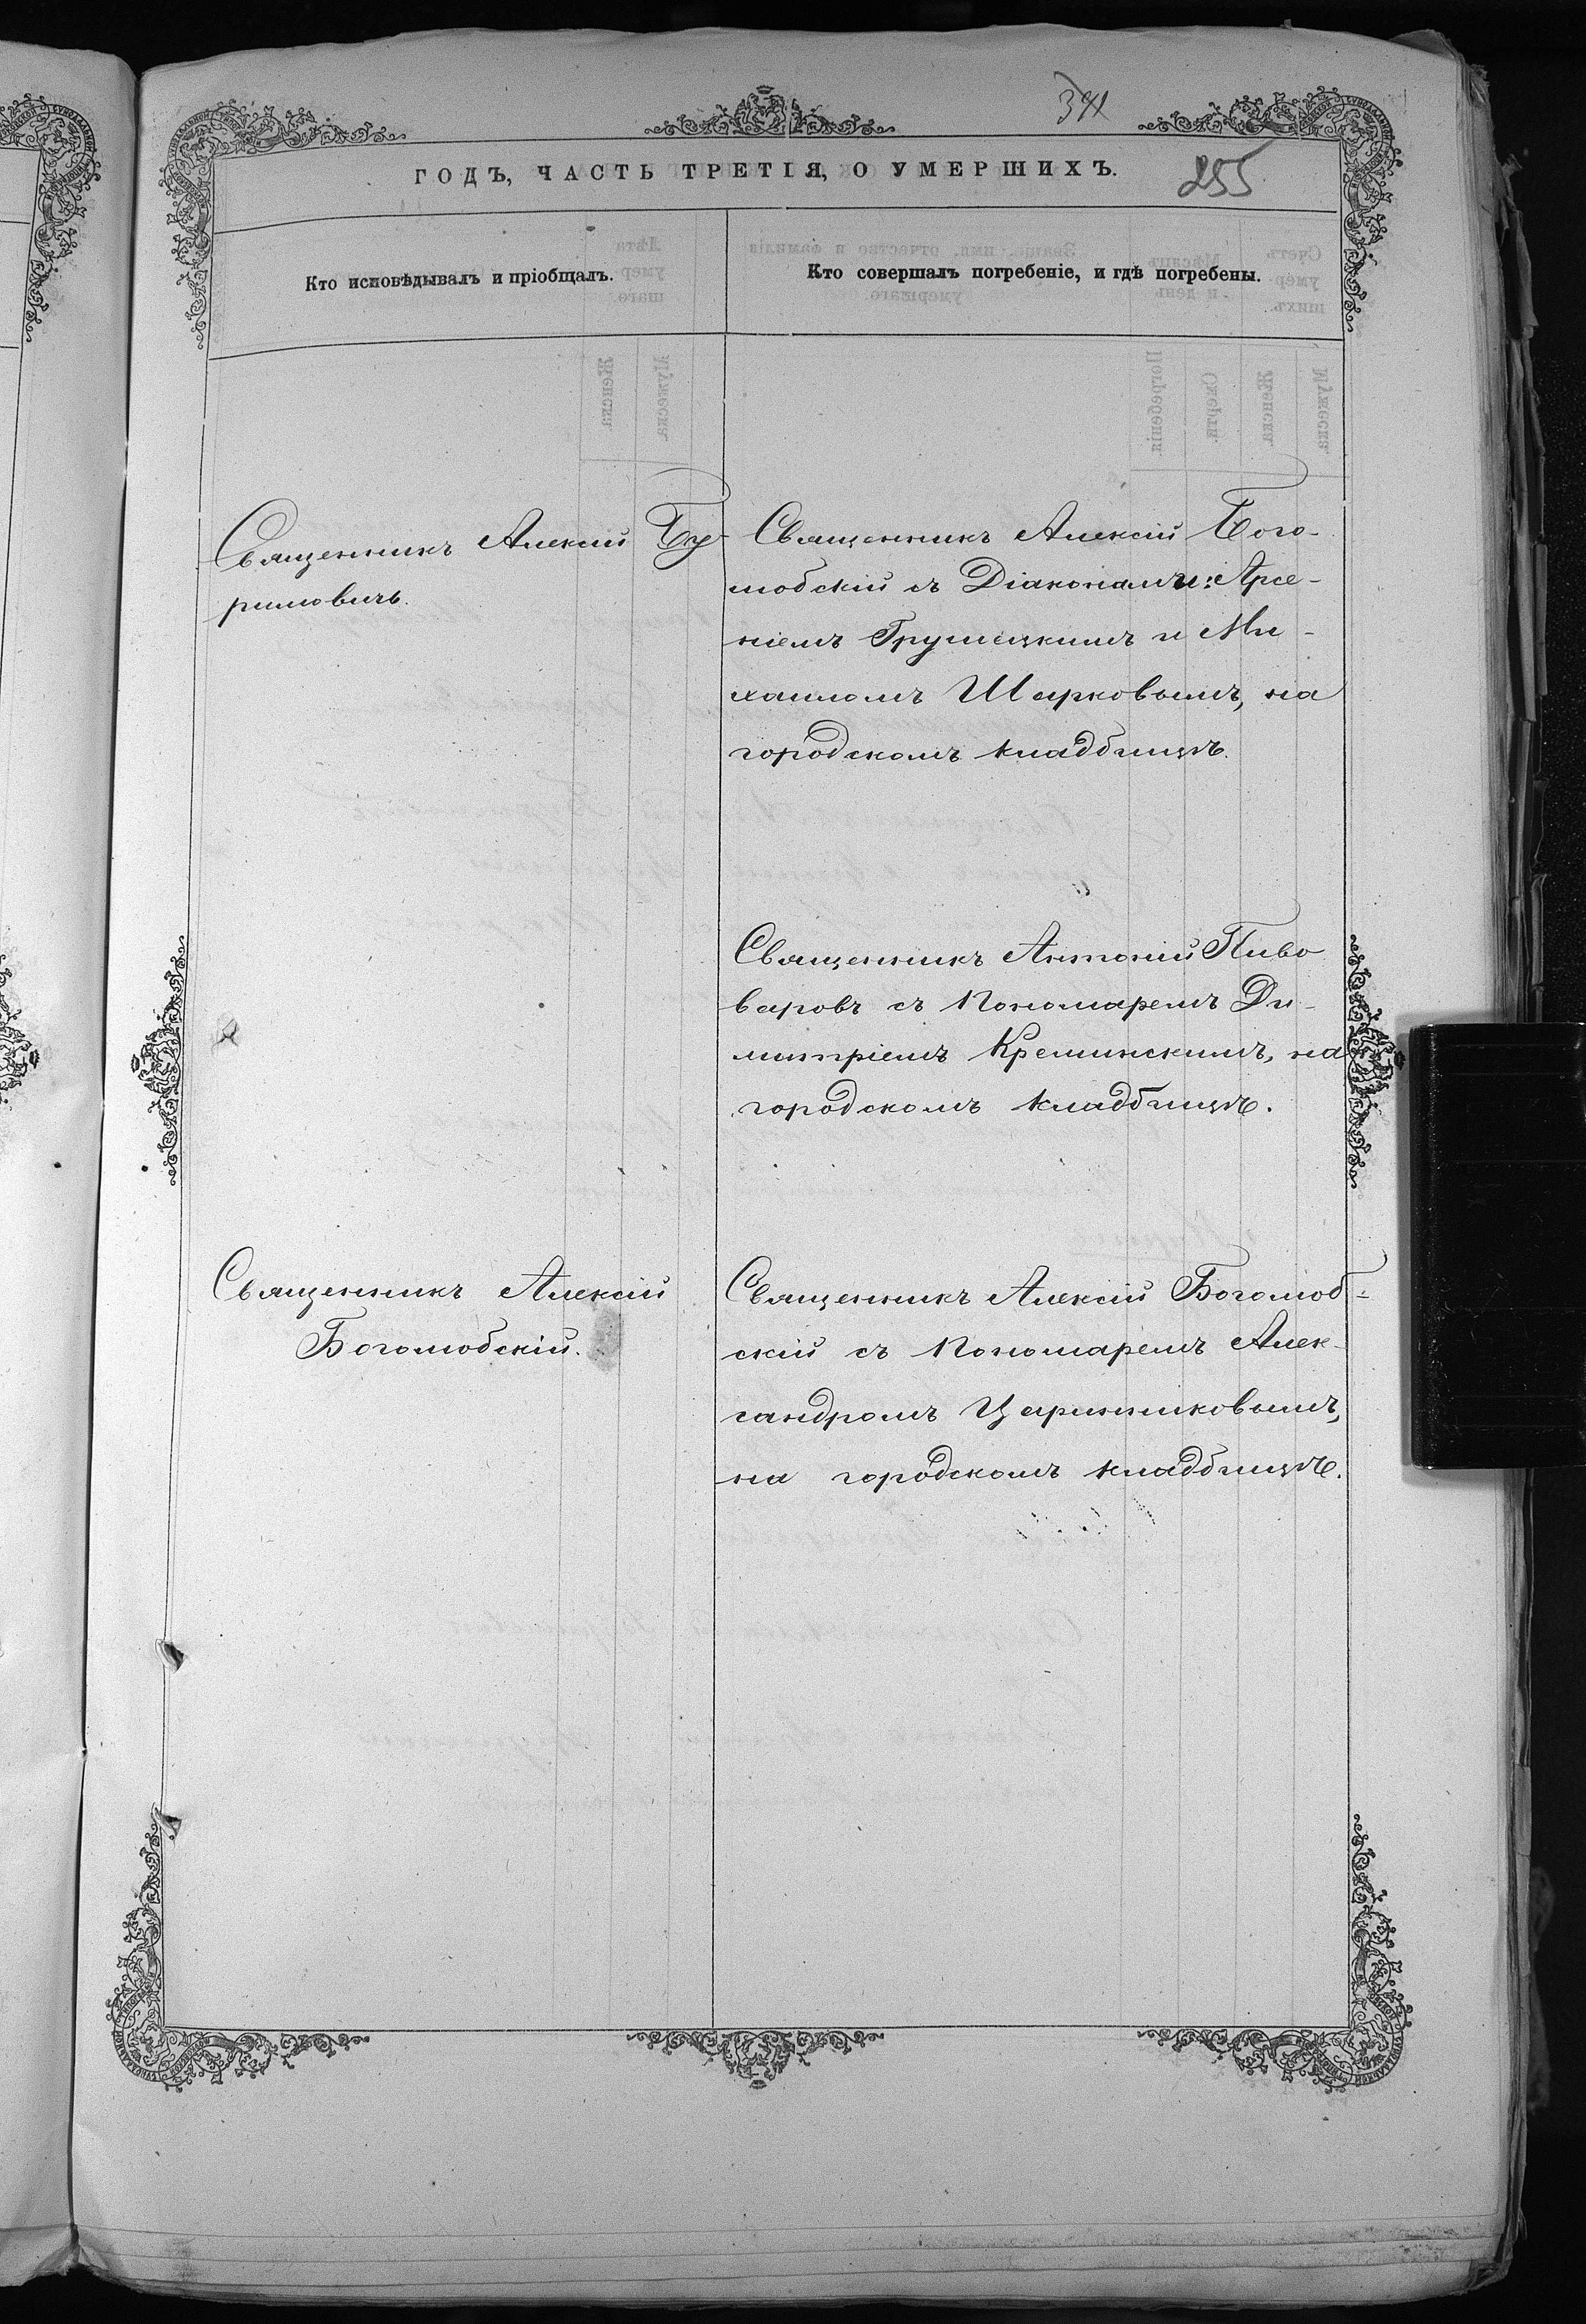 341
ГОДЪ, ЧАСТЬ ТРЕТІЯ, О УМЕРШИХЪ.
255
Кто исповѣдывалъ и пріобщалъ.
Кто совершалъ погребеніе, и гдѣ погребены.
Священникъ Алексій Бу-
римовичъ.
Священникъ Алексій Бого-
любскій съ Діаконами: Арсе-
ніемъ Грушецкимъ и Ми-
хаиломъ Шарковымъ, на
городскомъ кладбищѣ.
Священникъ Антоній Пиво
варовъ съ Пономаремъ Ди-
митріемъ Креминскимъ, на
городскомъ кладбищѣ.
Священникъ Алексій
Боголюбскій.
Священникъ Алексій Боголюб-
скій съ Пономаремъ Алек-
сандромъ Царинниковымъ,
на городскомъ кладбищѣ.